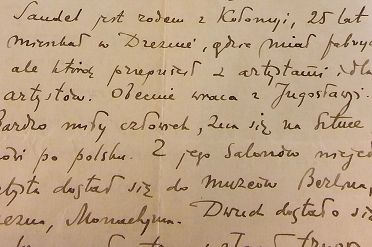 Sandel jest rodem z Kołomyi, 25 lat
mieszkał w Dreźnie, gdzie miał fabryk
ale którą przepuścił z artystami i dla
artystów. Obecnie wraca z Jugosławji.
Bardzo miły człowiek, zna się na sztuce
mówi po polsku. Z jego Salonów niejed
artysta dostał się do muzeów Berlina,
rezna, Monachjum. Dwuch dostało si